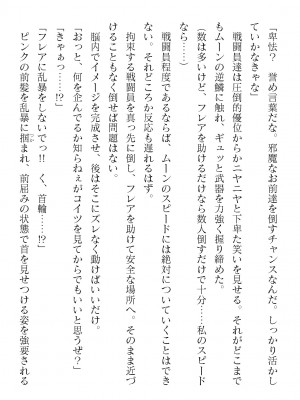 「卑怯？　誉め言葉だな。邪魔なお前達を倒すチャンスなんだ。しっかり活かし
ていかなきゃな」
　戦闘員達は圧倒的優位からかニヤニヤと下卑た笑いを見せる。それがどこまで
もムーンの逆鱗に触れ、ギュッと武器を力強く握り締めた。
（数は多いけど、フレアを助けるだけなら数人倒すだけで十分……私のスピード
なら……）
　戦闘員程度であるならば、ムーンのスピードには絶対についていくことはでき
ず、それどころか反応も遅れるはず。
　拘束する戦闘員を真っ先に倒し、フレアを助けて安全な場所へ。そのまま近づ
けることもなく倒せば問題はない。
　脳内でイメージを完成させ、後はそこにズレなく動けばいいだけ。
「おっと、何を企んでるか知らねぇがコイツを見てからでもいいと思うぜ？」
「きゃぁっ……!?」
「フレアに乱暴しないでっ!!　く、首輪……!?」
　ピンクの前髪を乱暴に掴まれ、前屈みの状態で首を見せつける姿を強要される